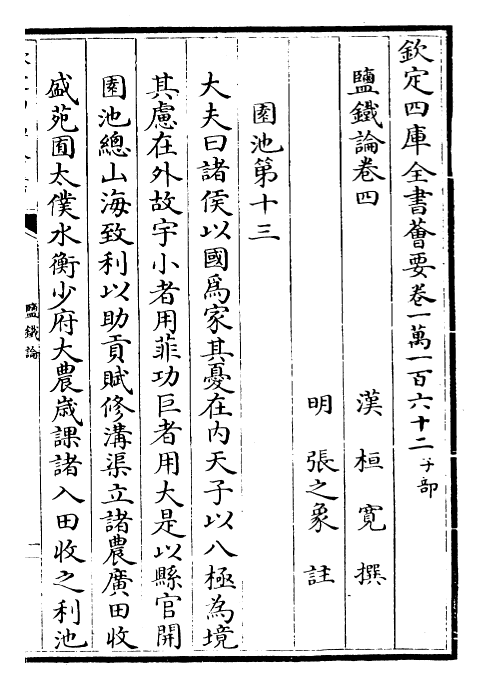 欽定四庫全書薈要卷一萬一百六十二 子部
鹽鐵論卷四
漢 桓寛 撰
明 張之象 註
園池第十三
大夫曰諸侯以國爲家其憂在内天子以八極為境
其慮在外故宇小者用菲功巨者用大是以縣官開
園池總山海致利以助貢賦修溝渠立諸農廣田收
盛苑囿太僕水衡少府大農歲課諸入田收之利池
鹽鐵論
一